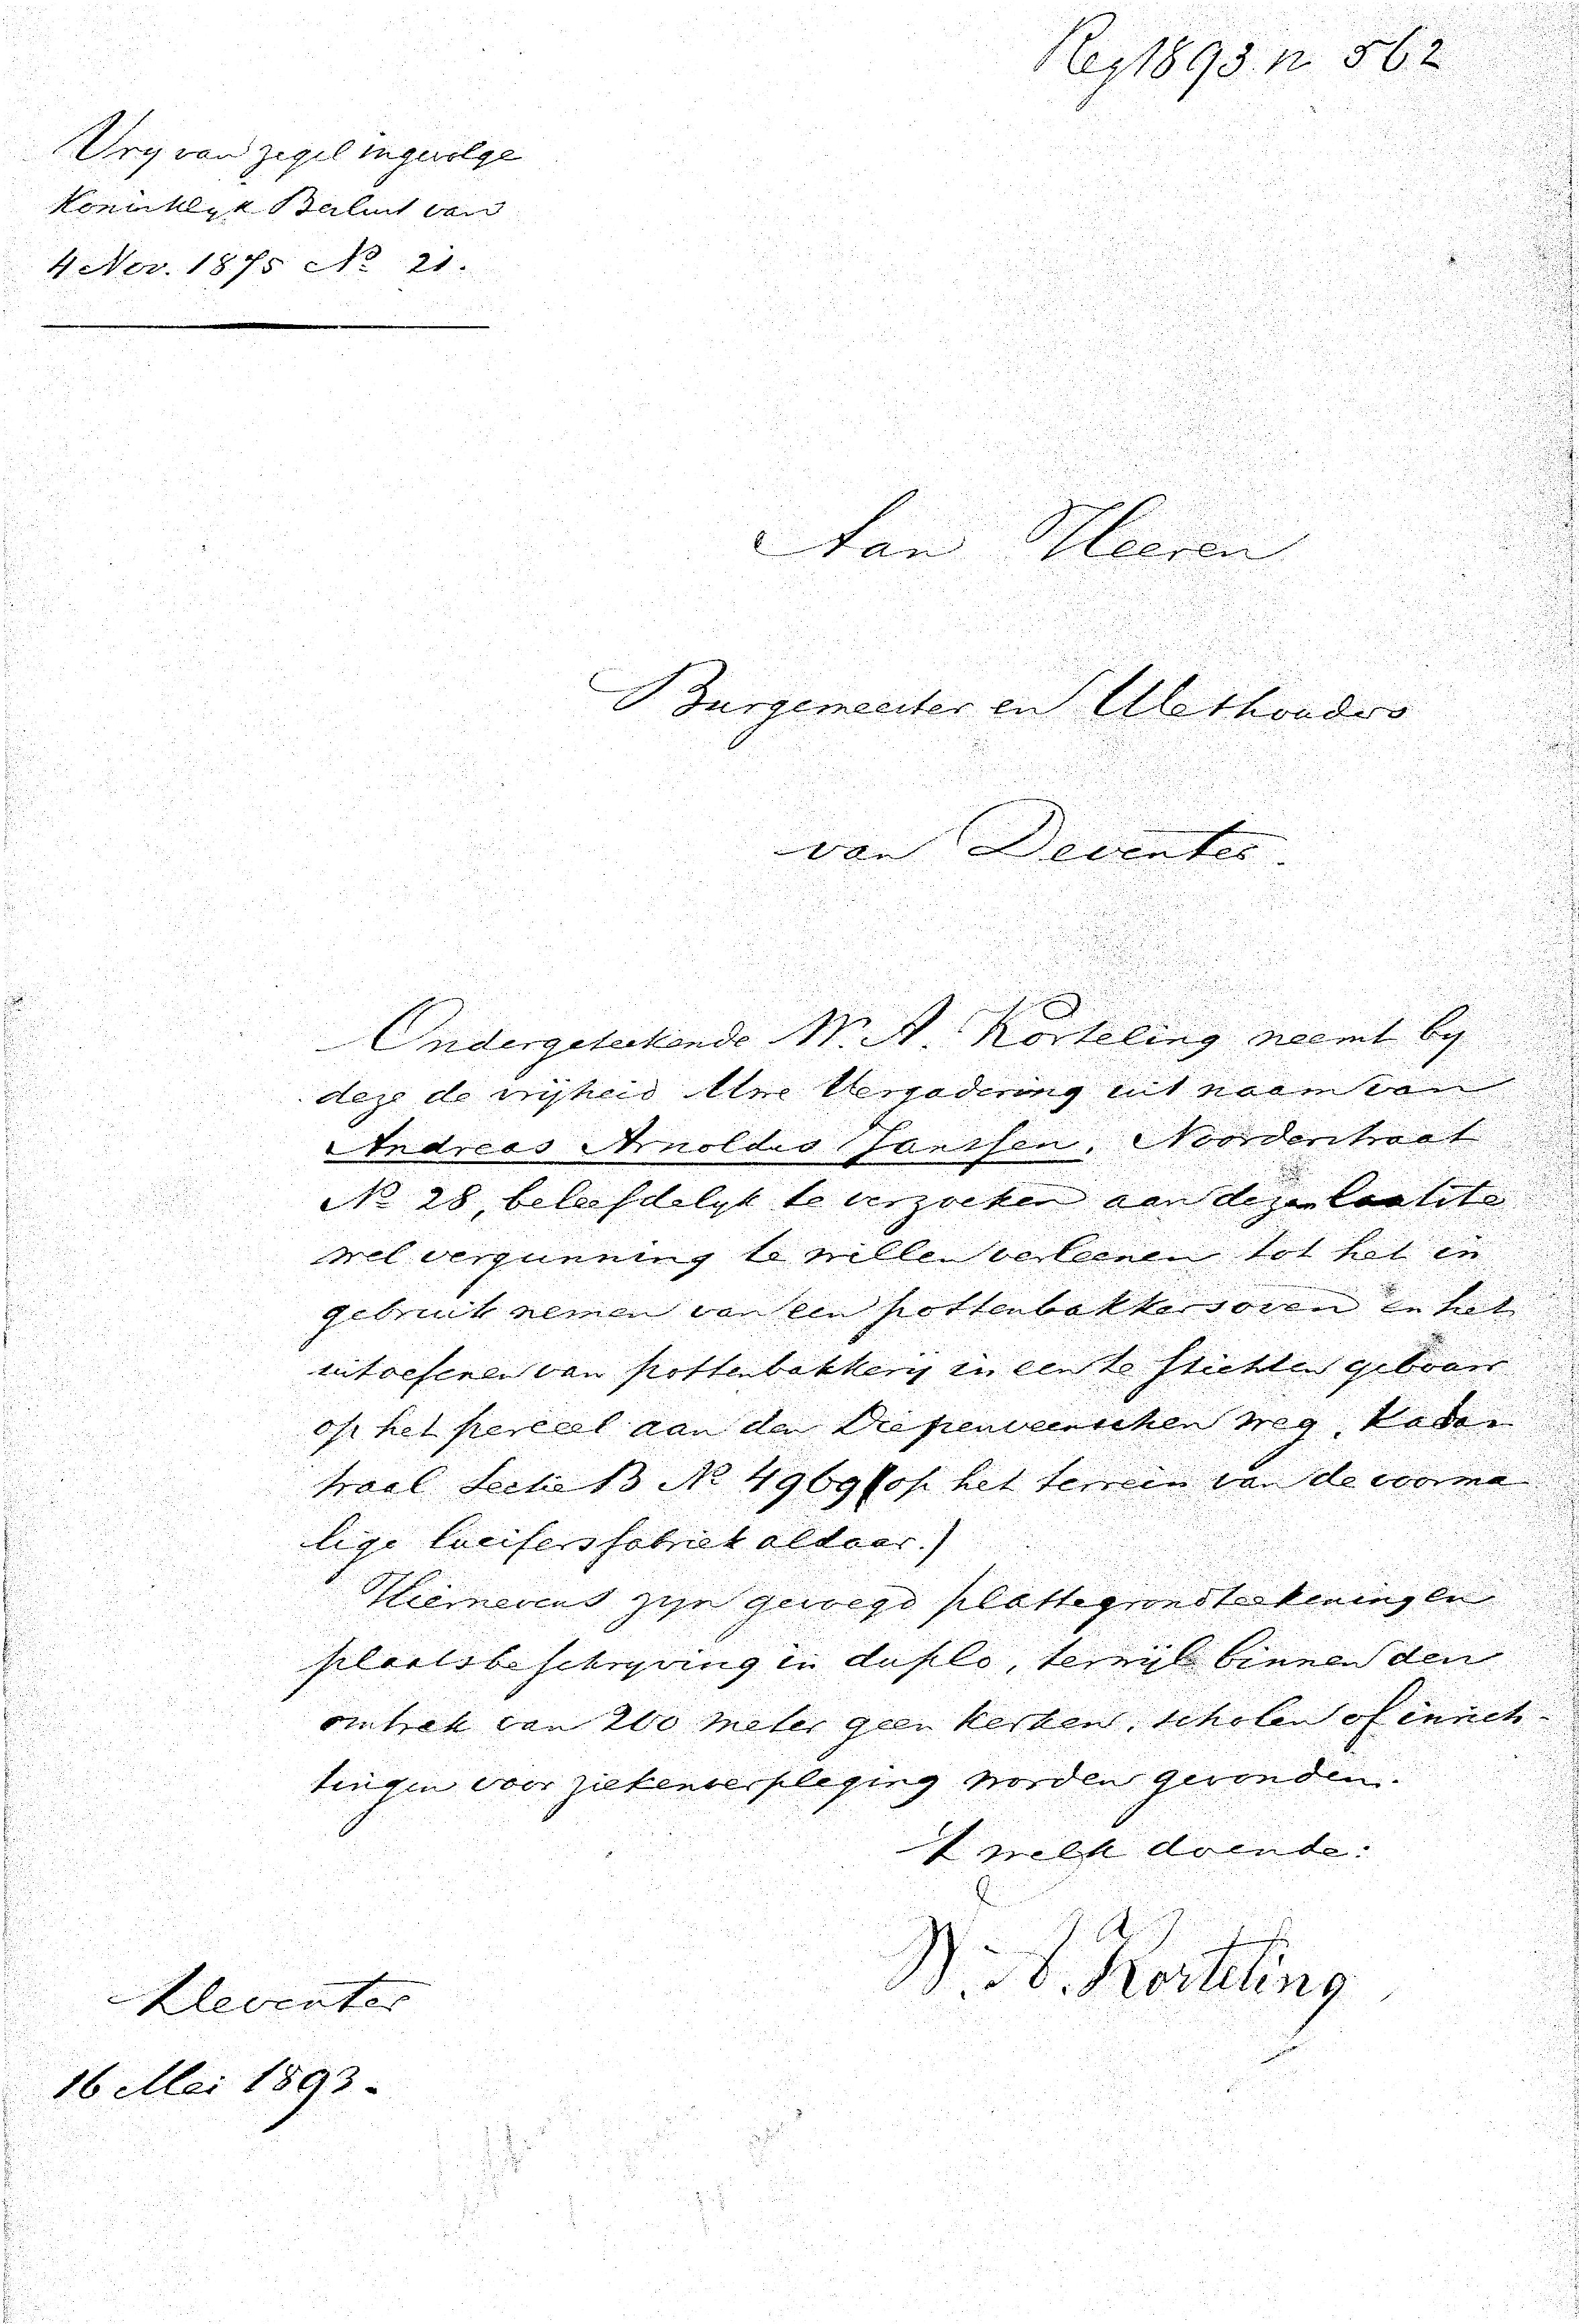 Reg 1893 n 562
Vry van zegel ingevolge
Koninklyk Besluit van
4 Nov. 1875 No 21.
Aan Heeren
Burgemeester en Wethouders
van Deventer.
Ondergeteekende W. A. Korteling neemt by
deze de vrijheid Uwe Vergadering uit naam van
Andreas Arnoldus Janssen, Noorderstraat
No 28, beleefdelyk te verzoeken aan dezen laatste
wel vergunning te willen verleenen tot het in
gebruik nemen van een pottenbakkersoven en het
uitoefenen van pottenbakkery in een te stichten gebouw
op het perceel aan den Diepenveenschen weg, kadas
traal Sectie B No 4969 (op het terrein van de voorma
lige lucifersfabriek aldaar.)
Hiernevens zyn gevoegd plattegrondteekening en
plaatsbeschryving in duplo, terwijl binnen den
omtrek van 200 meter geen kerken, scholen of inrich-
tingen voor ziekenverpleging worden gevonden.
't welk doende:
W. A. Korteling
Deventer
16 Mei 1893.